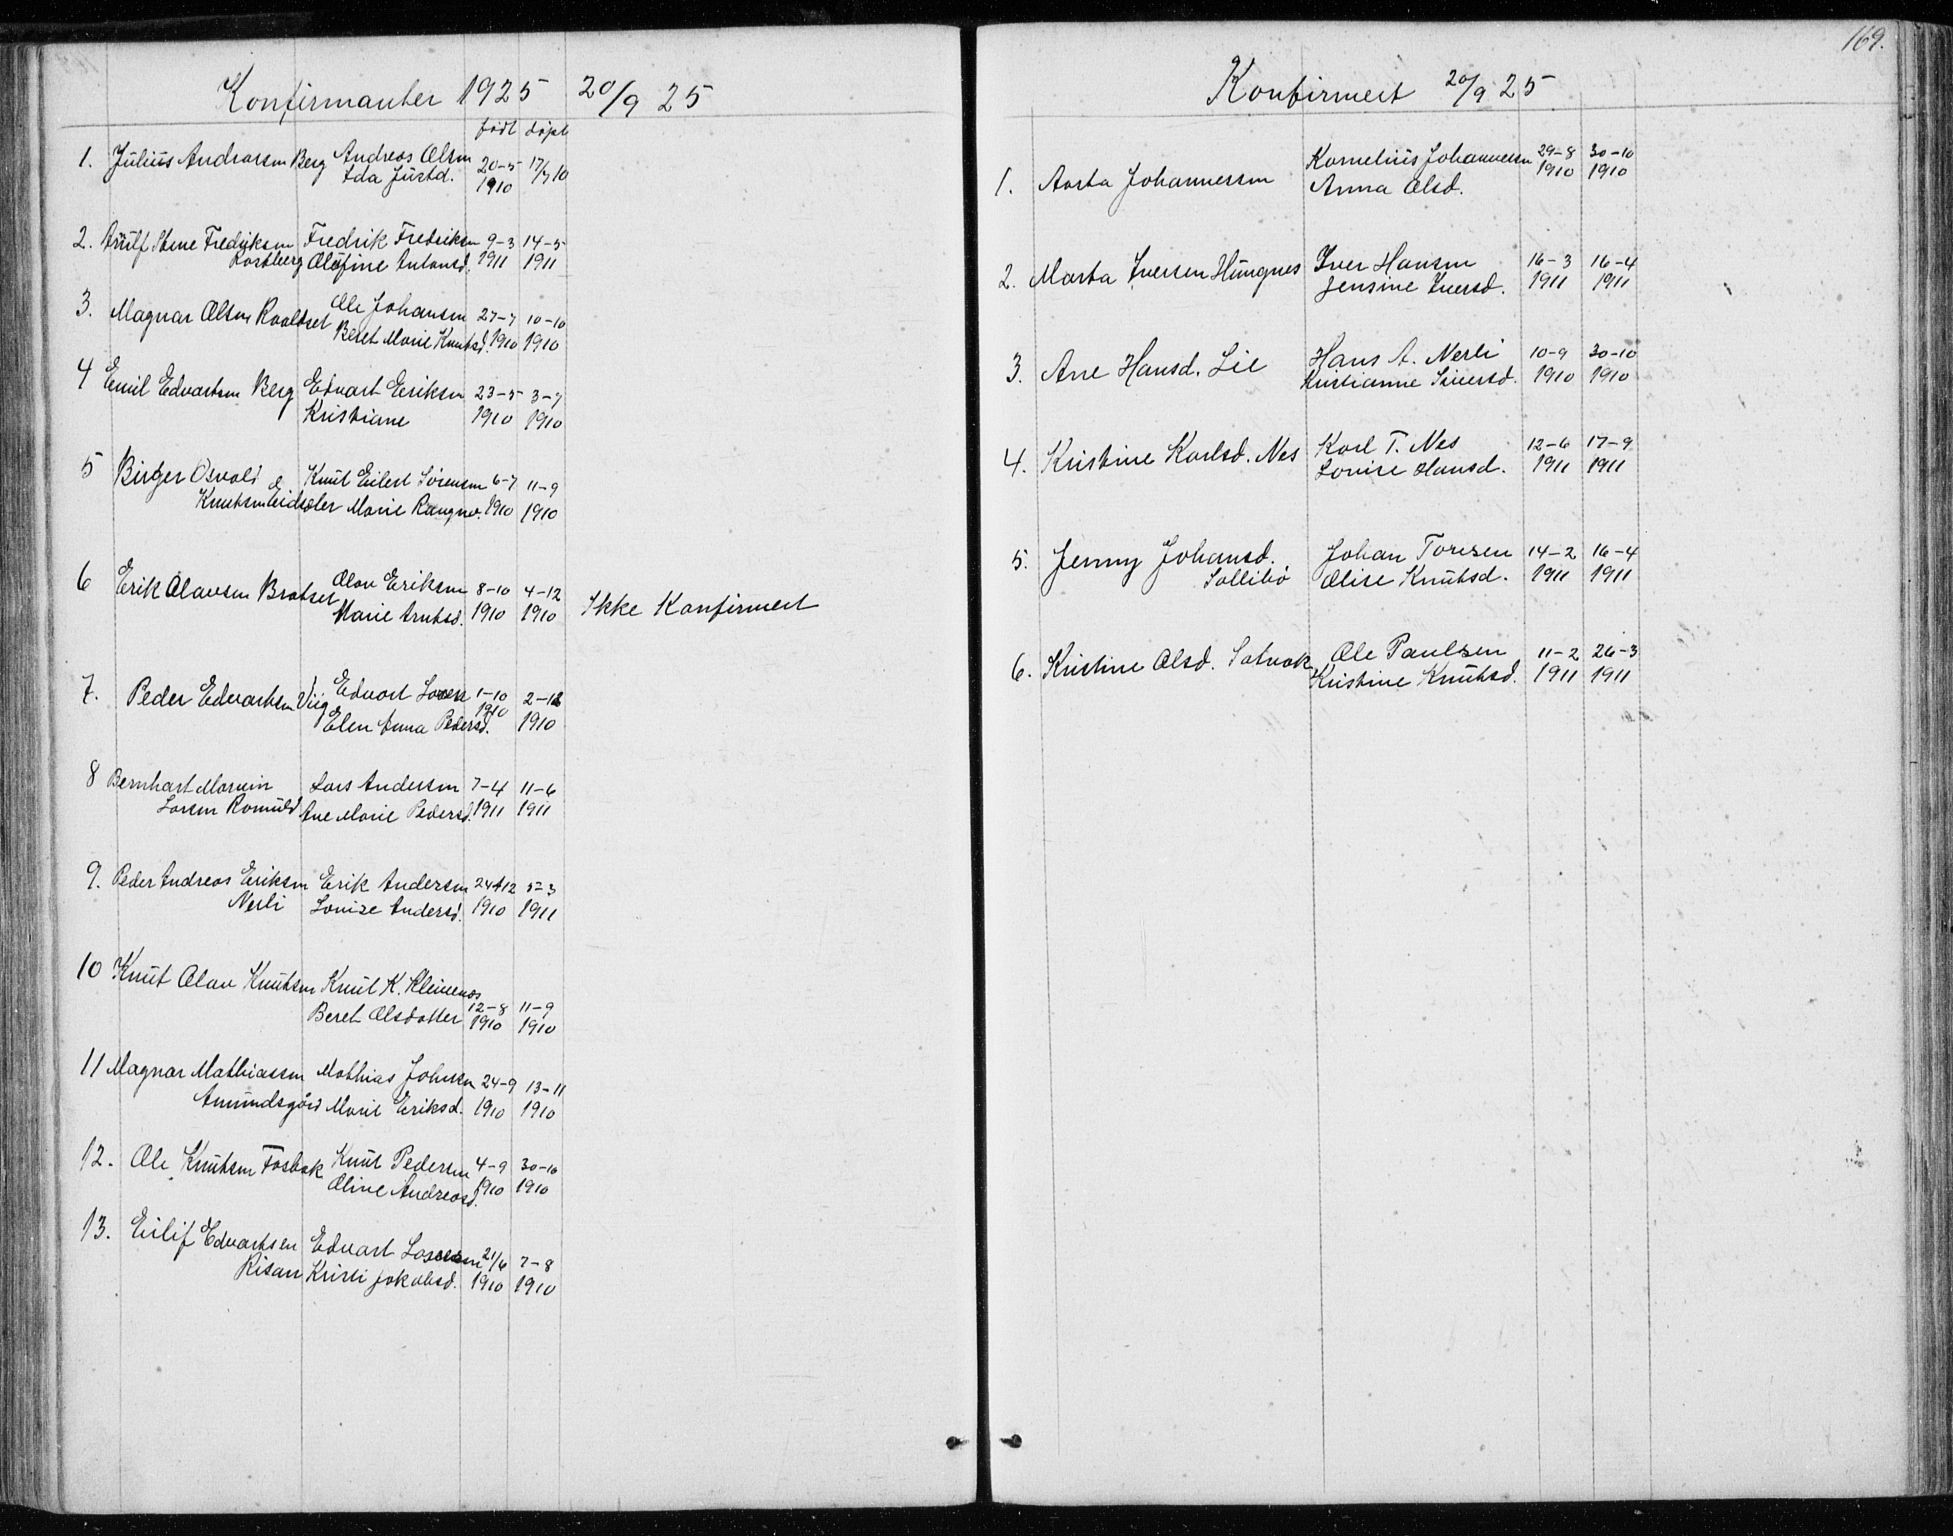 Konfirmanter 1925 20/9 25
født døpt
1. Julius Andreassen Berg Andreas Olsen 20-5 17/7 10
Ida Justd. 1910
2. Stene Fredriksen Fredrik Fredriksen 9-3 14-5
Rostberg Olufine Antonsd. 1911 1911
3. Magnar Olsen Roaldset Ole Johansen 27-7 10-10
Beret Marie Knutsd. 1910 1910
4 Emil Edvartsen Berg Edvart Eriksen 23-5 3-7
Kristiane 1910 1910
5 Birger Osvald Knut Eilert Sørensen 6-7 11-9
Knutsen Marie Rangnv. 1910 1910
6 Erik Olavsen Bratset Olav Eriksen 8-10 4-12
Marie Arntsd. 1910 1910 Ikke Konfirmert
7. Peder Edvartsen Viig Edvart 1-10 2-12
Elen Anna Pedersd. 1910 1910
8 Bernhart Marvin Lars Andersen 7-4 11-6
Larsen Romuld Ane Marie Pedersd. 1911 1911
9. Peder Andreas Eriksen Erik Andersen 24-12 5-3
Nerli Lovise Andersd. 1910 1911
10 Knut Olav Knutsen Knut K. Kleivenes
Beret Olsdatter 12-8 11-9
1910 1910
11 Magnar Mathiassen Mathias Johnsen 24-9 13-11
Amundsgård Marie Eriksd. 1910 1910
12. Ole Knutsen Fosbak Knut Pedersen 4-9 30-10
Oline Andreasd. 1910 1910
13. Eilif Edvartsen Edvart 21/6 7-8
Risan Kirsti Jakobsd. 1910 1910
169.
Konfirmert 20/9 25
1. Aasta Johannessen Kornelius Johannessen 29-8 30-10
Anna Olsd. 1910 1910
2. Marta Iversen Hungnes Iver Hansen 16-3 16-4
Jensine Iversd. 1911 1911
3. Ane Hansd. Lie Hans A. Nerli 10-9 30-10
Kristianne Siversd. 1910 1910
4. Kristine Karlsd. Nes Karl T. Nes 12-6 17-9
Lovise Hansd. 1911 1911
5. Jenny Johansd. Johan Toresen 14-2 16-4
Sollibø Olise Knutsd. 1911 1911
6. Kristine Olsd. Satvak Ole Paulsen 11-2 26-3
Kristine Knutsd. 1911 1911